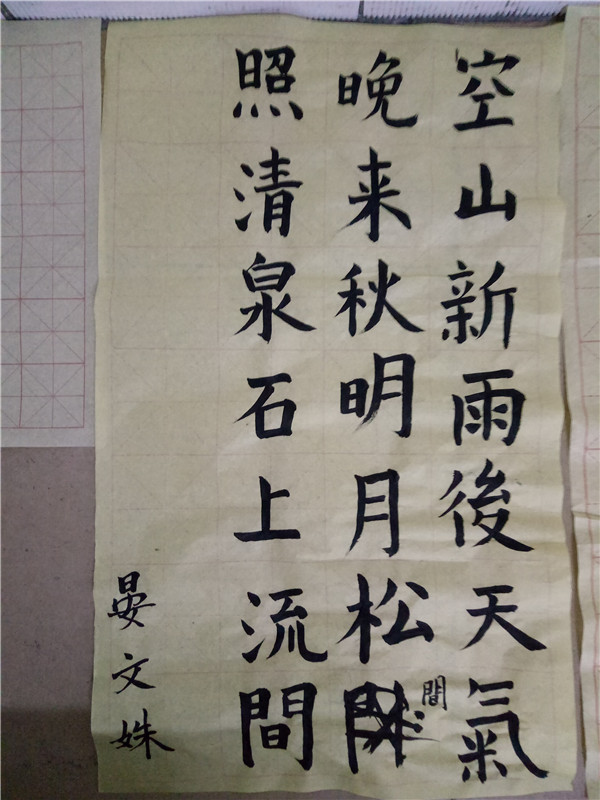 空山新雨後天氣
晚来秋明月松間
照清泉石上流間
晏文姝